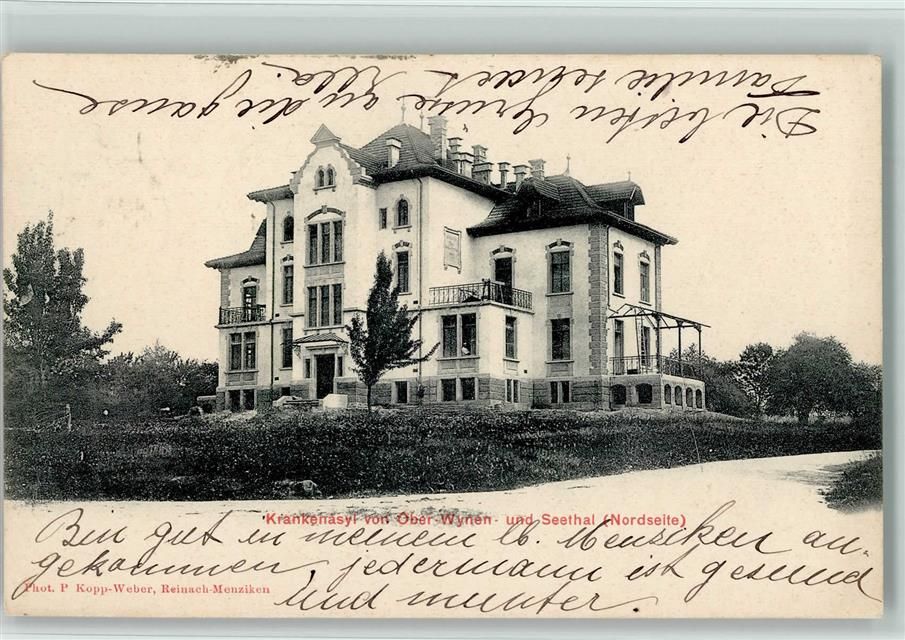 Krankenasyl von Ober Wynen- und Seethal (Nordseite)
Bin gut in meinem lb. Menziken an-
gekommen, jedermann ist gesund
und munter.
Phot. P Kopp-Weber, Reinach-Menziken
Die besten Grüsse an die ganse
Familie sendet